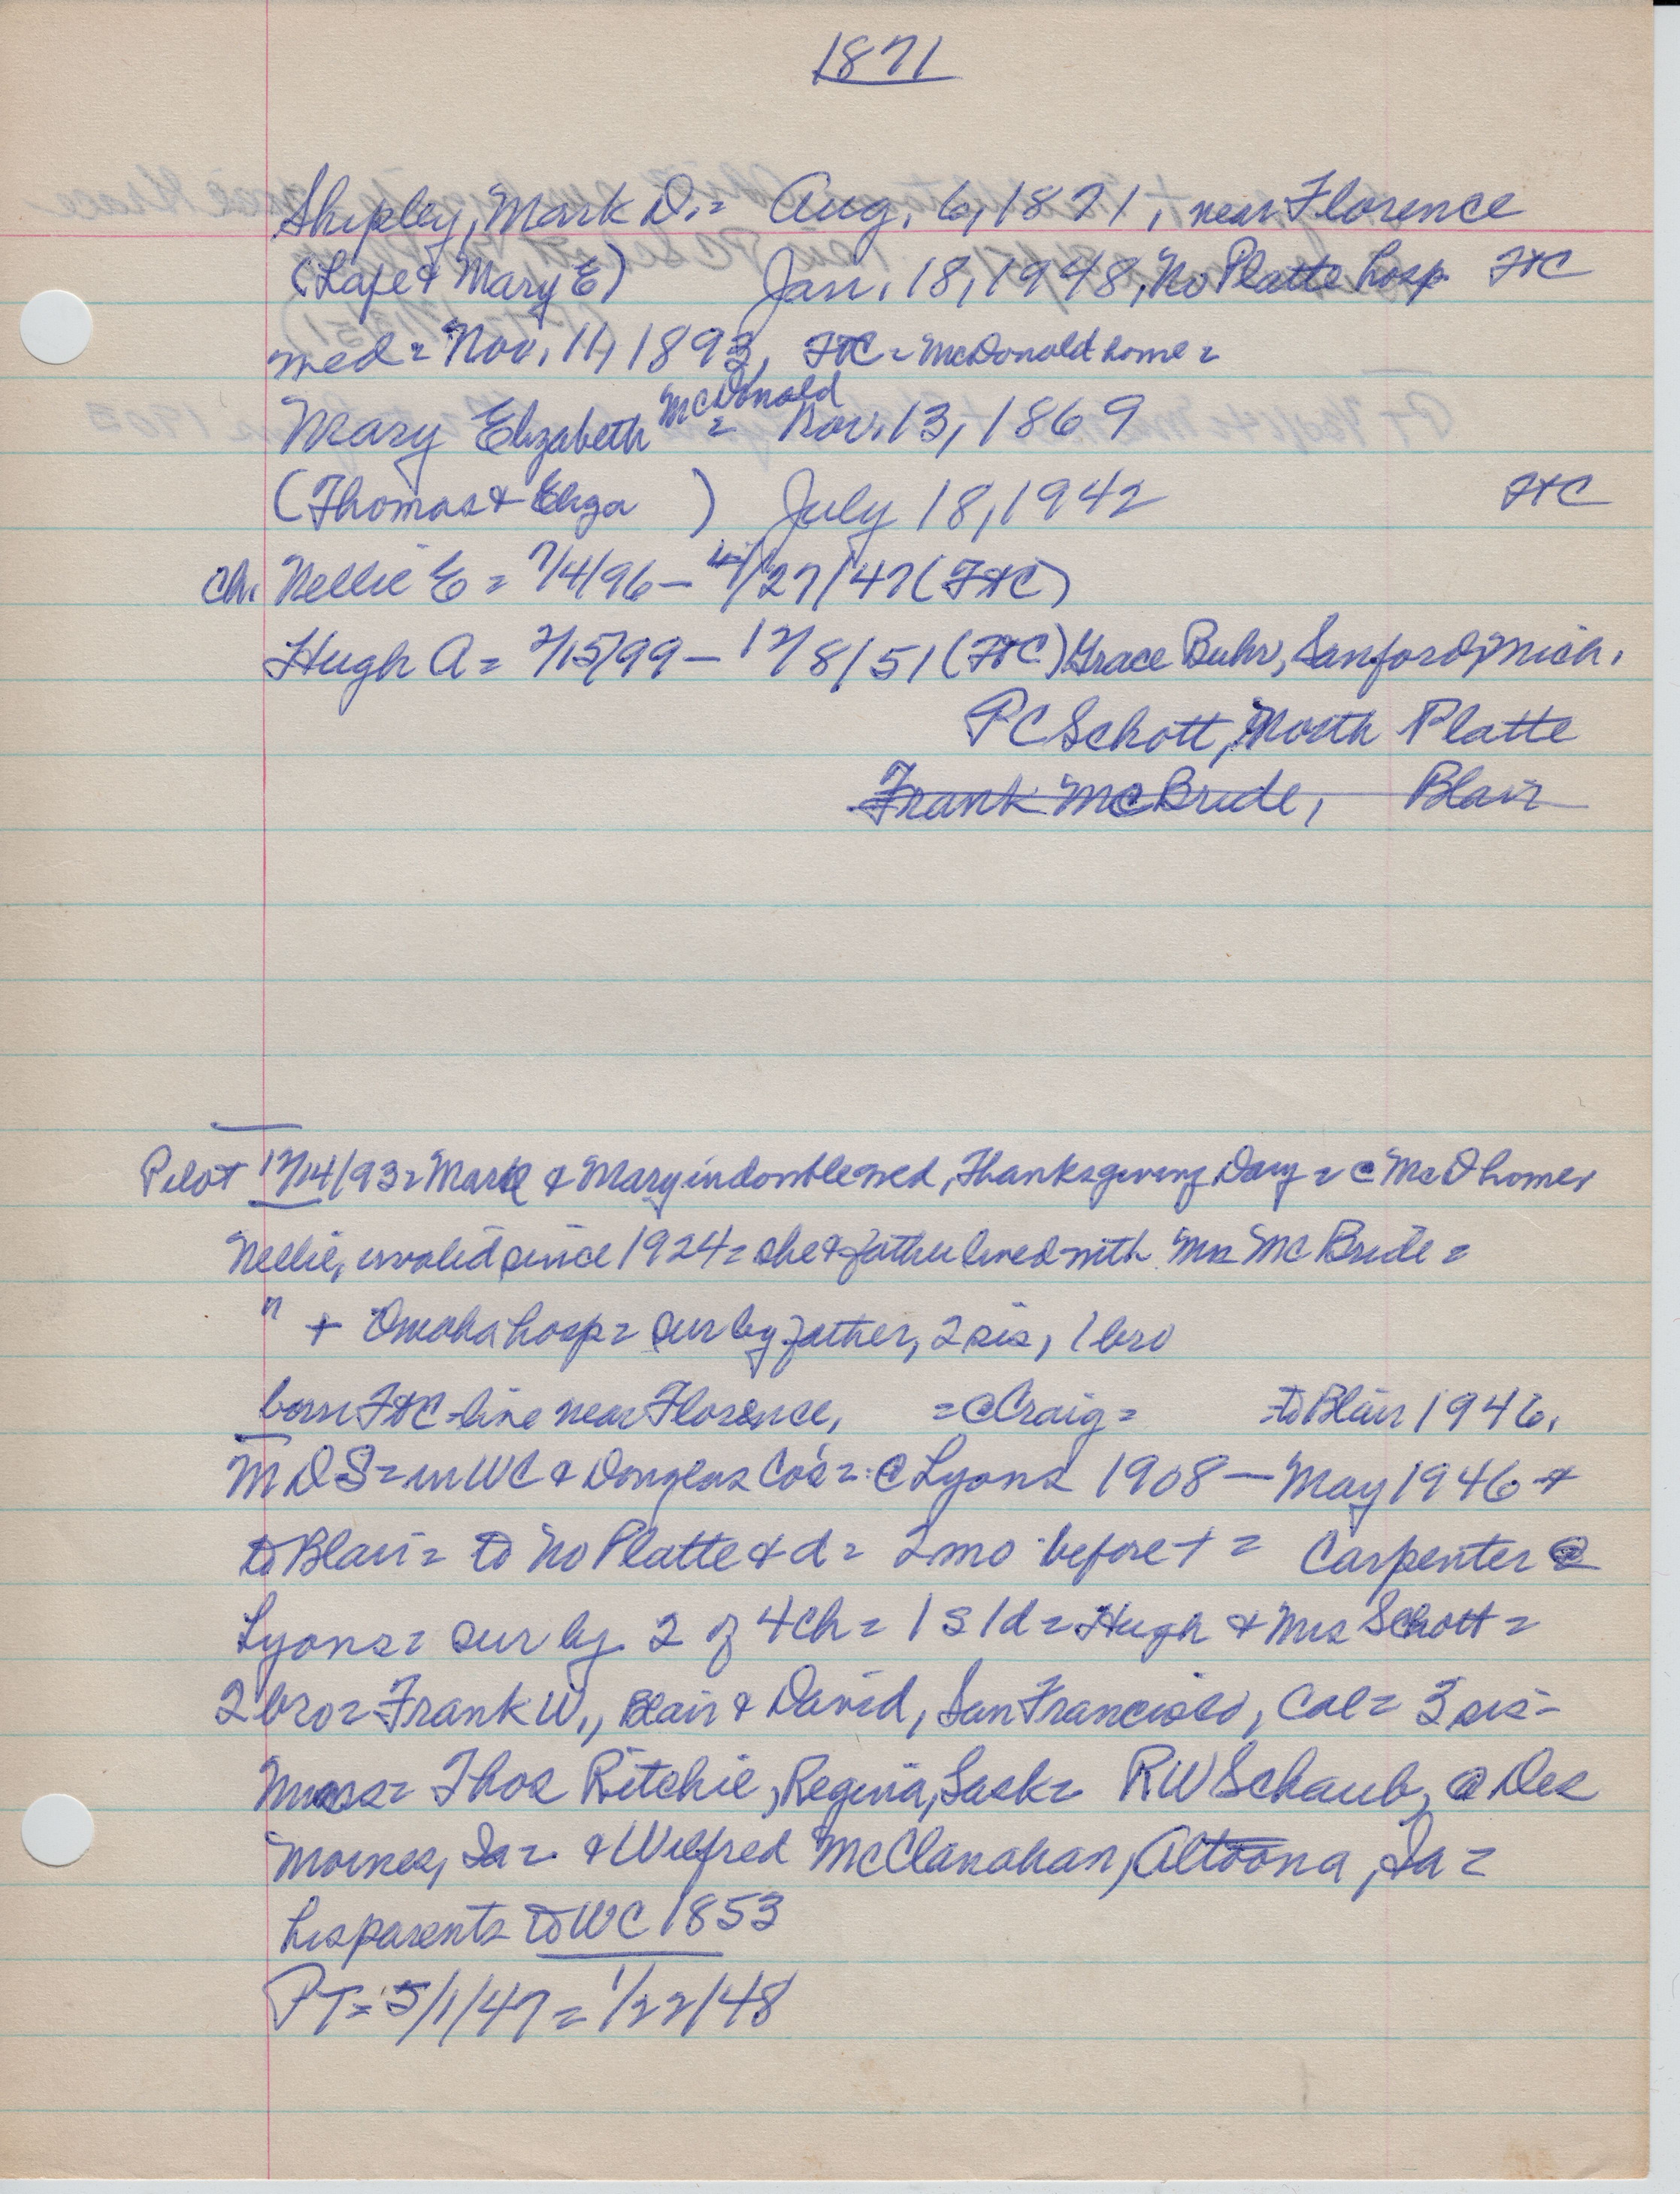 1871
Shipley, Mark D. = Aug. 6, 1871, near Florence
(Lafe & Mary E) Jan. 18, 1948, No Platte hosp. FtC
med = Nov. 11, 1893, FtC = McDonald home =
McDonald
Mary Elizabeth = Nov. 13, 1869
(Thomas & Eliza ) July 18, 1942 FtC
Ch. Nellie E = 7/4/96 - /27/47 (FtC)
Hugh A = 7/15/99 - 12/8/51 (FtC) Grace Buhr, Sanford, Mich.
PC Schott, North Platte
Frank McBride, Blair
Pilot 12/14/93 = Mark & Mary in double wed, Thanksgiving Day = @ McD home,
Nellie, invalid since 1924 = she & father lived with Mrs McBride =
" + Omaha hosp = sur by father, 2 sis, 1 bro
born FtC - line near Florence, = @ Craig = to Blair 1946.
MDS = in WC & Douglas Co's = @ Lyons 1908 - May 1946 &
to Blair = to No Platte & d = 2 mo before + = Carpenter @
Lyons = sur by 2 of 4 ch = 1 s 1 d = Hugh & Mrs Schott =
2 bro = Frank W., Blair & David, San Francisco, Cal = 3 sis =
Thos Ritchie, Regina, Sask = RW Schaub, @ Des
Moines, Ia = & Wilfred McClanahan, Altoona, Ia =
his parents to WC 1853
PT = 5/1/47 = 1/22/48